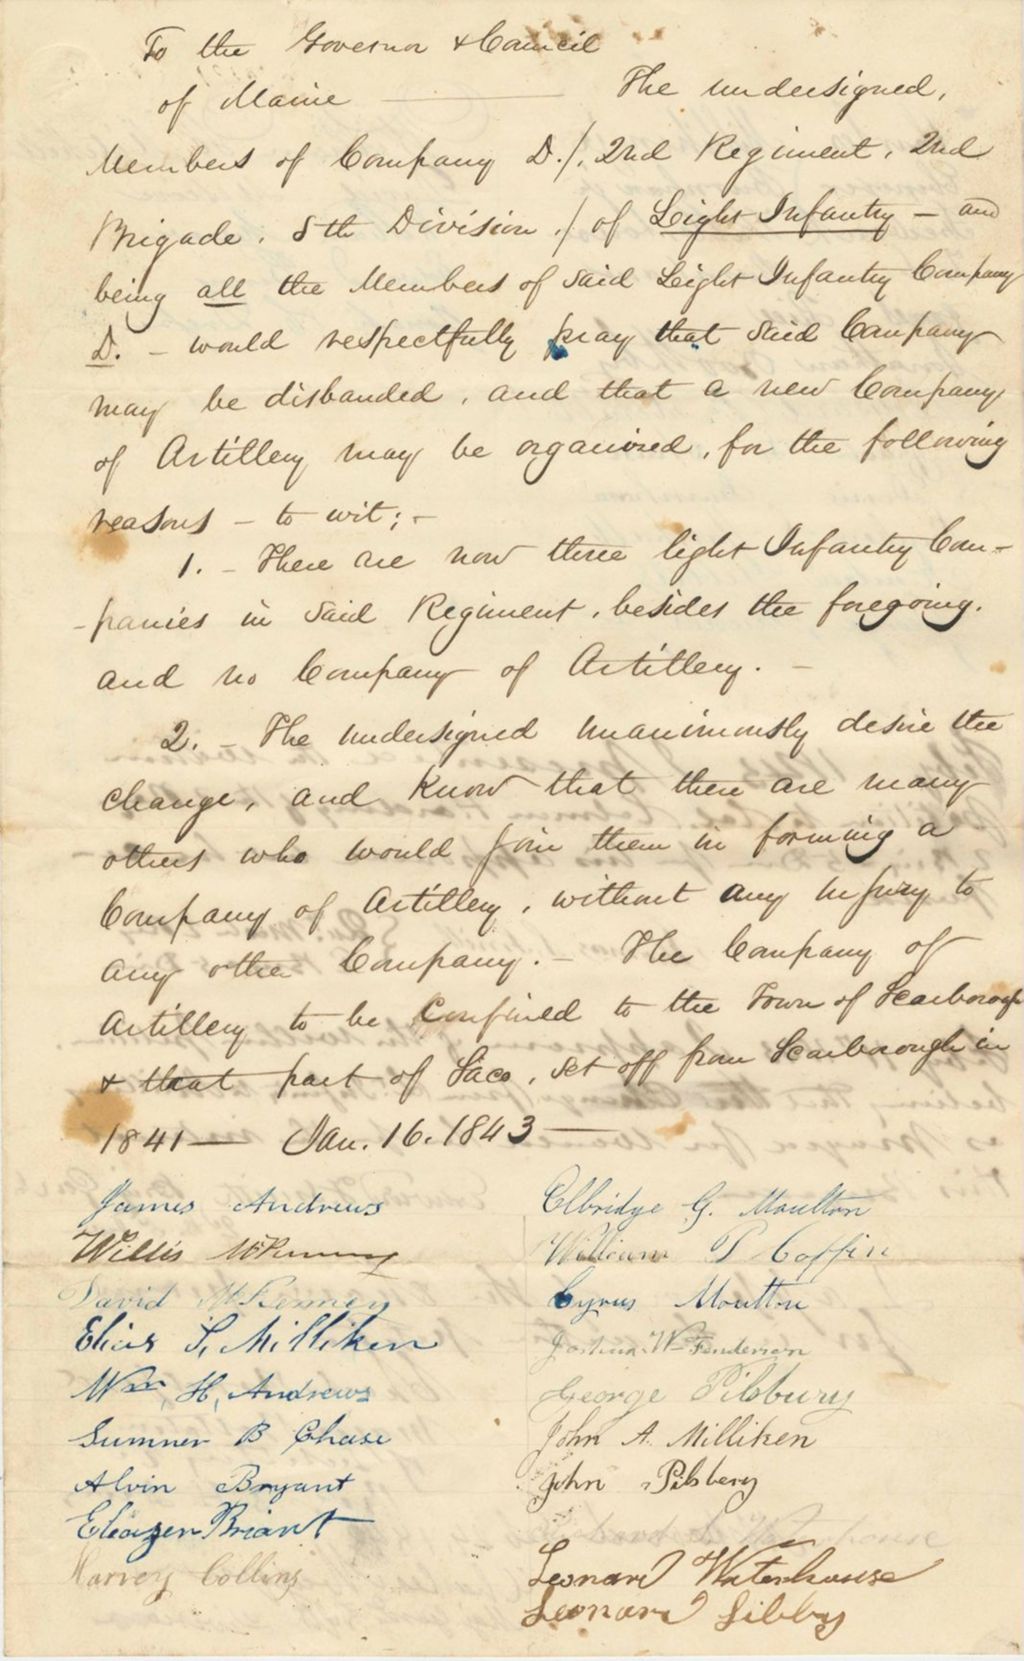 To the Governor & Council
of Maine — The undersigned,
Members of Company D./, 2nd Regiment, 2nd
Brigade, 5th Division ,/ of Light Infantry – and
being all the Members of said Light Infantry Company
D. – would respectfully pray that said Company
may be disbanded, and that a new Company
of Artillery may be organized, for the following
reasons – to wit; –
1. – There are now three light Infantry Com-
-panies in said Regiment, besides the foregoing.
and no Company of Artillery. –
2. – The undersigned unanimously desire the
change, and know that there are many
others who would join them in forming a
Company of Artillery, without any injury to
any other Company. – The Company of
Artillery to be confined to the Town of Scarborough
& that part of Saco, set off from Scarborough in
1841 — Jan. 16. 1843 —
James Andrews
Willis McKenney
David McKenney
Elias S. Milliken
Wm. H. Andrews
Sumner B Chase
Alvin Bryant
Eleazer Briant
Harvey Collins
Elbridge G. Moulton
William P Coffin
Cyrus Moulton
Joshua Wm Fenderson
George Pilsbury
John A. Milliken
John Pilsbery
Leonard Waterhouse
Leonard Libby